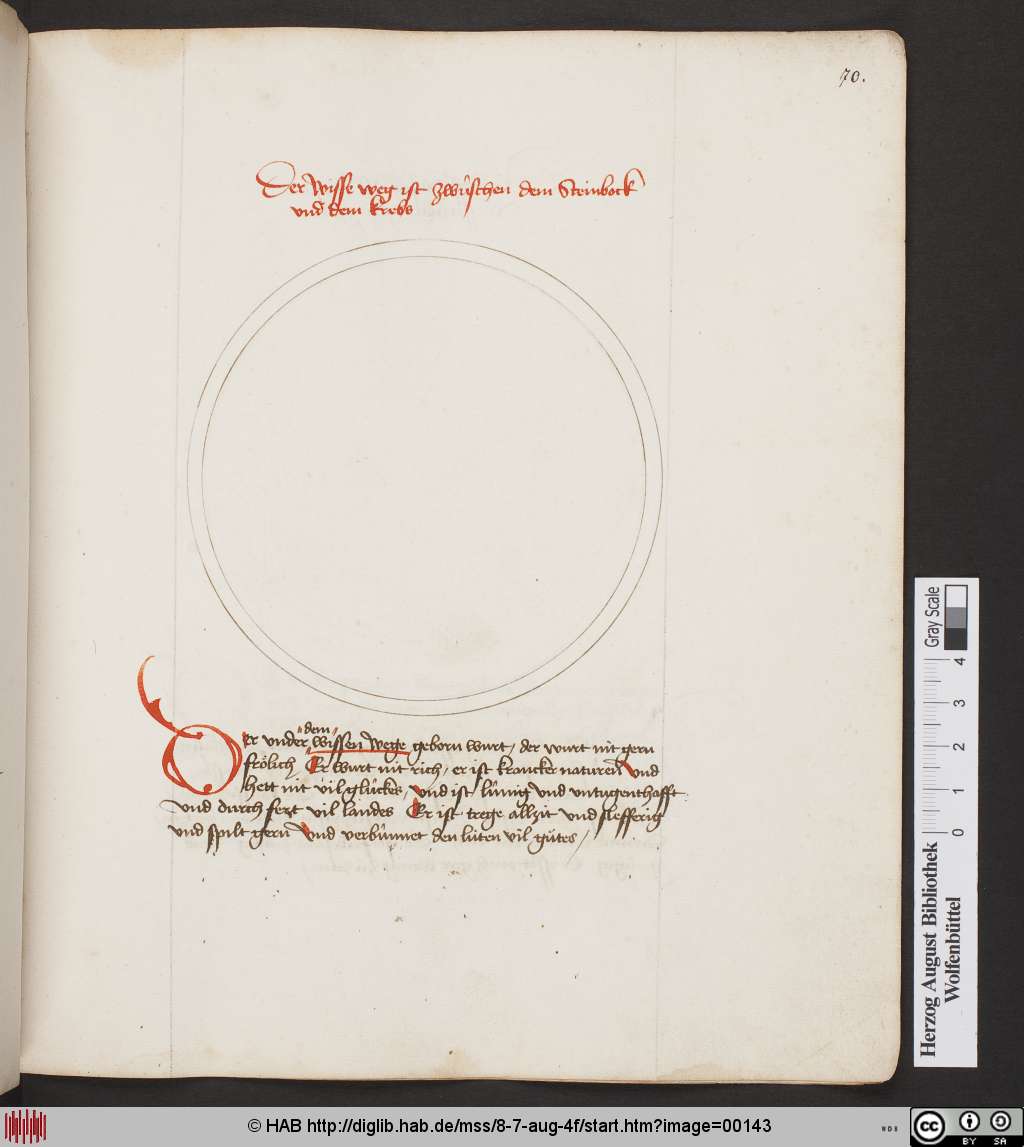 70.
Der wisse weg ist zwúschen dem Steinbock
vnd dem krebs
dem
Der vnder wissen wege geborn wurt, der wurt nit gern
frölich Er wurt nit rich, er ist krancker naturen vnd
hett nit vil glückes, vnd ist lúnig vnd vntugenthafft
vnd durch fert vil landes Er ist trege allzit vnd slefferig
vnd spilt gern vnd verbúnnet den lúten vil gútes,
Gray Scale
0 1 2 3 4
Herzog August Bibliothek
Wolfenbüttel
© HAB http://diglib.hab.de/mss/8-7-aug-4f/start.htm?image=00143
WDB
cc BY SA